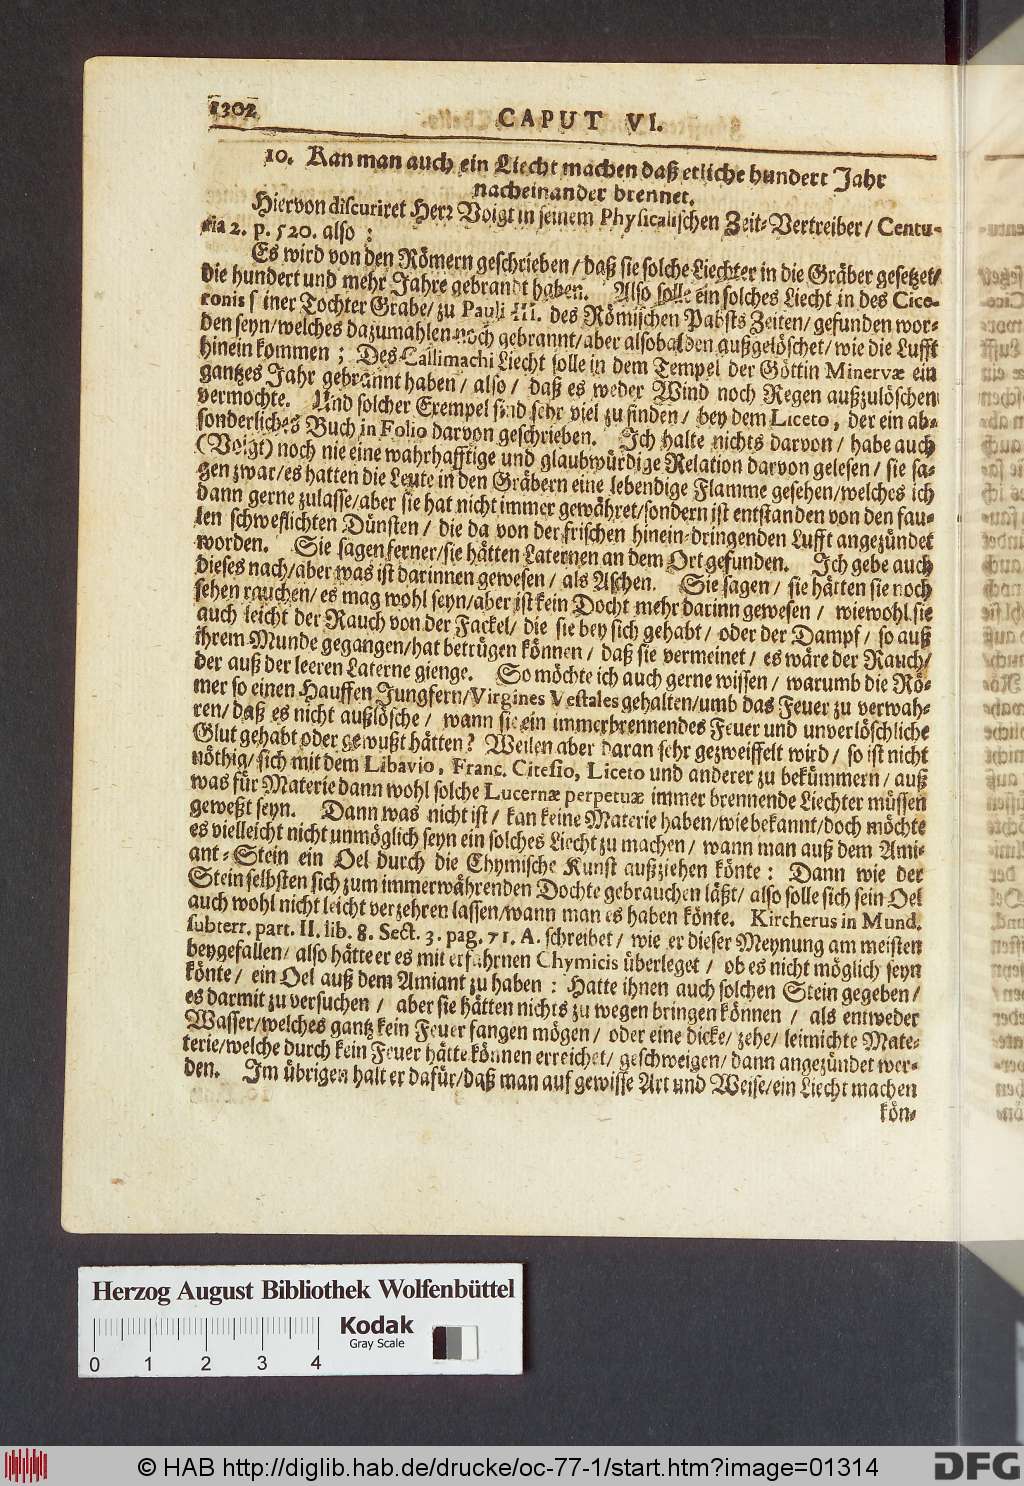 1302
CAPUT VI.
10. Kan man auch ein Liecht machen daß etliche hundert Jahr
nacheinander brennet.
Hiervon discuriret Herr Voigt in seinem Physicalischen Zeit-Vertreiber / Centu-
ria 2. p. 520. also :
Es wird von den Römern geschrieben / daß sie solche Liechter in die Gräber gesetzet/
die hundert und mehr Jahre gebrandt haben. Also solle ein solches Liecht in des Cice-
ronis seiner Tochter Grabe/ zu Pauli III. des Römischen Pabsts Zeiten/ gefunden wor-
den seyn/welches dazumahlen noch gebrannt/aber alsobalden außgelöschet/ wie die Lufft
hinein kommen ; Des Callimachi Liecht solle in dem Tempel der Göttin Minervæ ein
gantzes Jahr gebrannt haben / also / daß es weder Wind noch Regen außzulöschen
vermochte. Und solcher Exempel sind sehr viel zu finden / bey dem Liceto, der ein ab-
sonderliches Buch in Folio darvon geschrieben. Ich halte nichts darvon / habe auch
(Voigt) noch nie eine wahrhafftige und glaubwürdige Relation darvon gelesen / sie sa-
gen zwar/es hatten die Leute in den Gräbern eine lebendige Flamme gesehen/welches ich
dann gerne zulasse/aber sie hat nicht immer gewähret/sondern ist entstanden von den fau-
len schweflichten Dünsten / die da von der frischen hinein-dringenden Lufft angezündet
worden. Sie sagen ferner/sie hätten Laternen an dem Ort gefunden. Ich gebe auch
dieses nach/aber was ist darinnen gewesen / als Aschen. Sie sagen / sie hätten sie noch
sehen rauchen/ es mag wohl seyn/aber ist kein Docht mehr darinn gewesen / wiewohl sie
auch leicht der Rauch von der Fackel/ die sie bey sich gehabt / oder der Dampf / so auß
ihrem Munde gegangen/hat betrügen können / daß sie vermeinet / es wäre der Rauch/
der auß der leeren Laterne gienge. So möchte ich auch gerne wissen / warumb die Rö-
mer so einen Hauffen Jungfern/Virgines Vestales gehalten/umb das Feuer zu verwah-
ren/ daß es nicht außlösche / wann sie ein immerbrennendes Feuer und unverlöschliche
Glut gehabt oder gewußt hätten? Weilen aber daran sehr gezweiffelt wird / so ist nicht
nöthig/ sich mit dem Libavio, Franc. Citesio, Liceto und anderer zu bekümmern / auß
was für Materie dann wohl solche Lucernæ perpetuæ immer brennende Liechter müssen
geweßt seyn. Dann was nicht ist / kan keine Materie haben/wie bekannt/doch möchte
es vielleicht nicht unmöglich seyn ein solches Liecht zu machen / wann man auß dem Ami-
ant-Stein ein Oel durch die Chymische Kunst außziehen könte : Dann wie der
Stein selbsten sich zum immerwährenden Dochte gebrauchen läßt/ also solle sich sein Oel
auch wohl nicht leicht verzehren lassen/wann man es haben könte. Kircherus in Mund.
subterr. part. II. lib. 8. Sect. 3. pag. 71. A. schreibet / wie er dieser Meynung am meisten
beygefallen/ also hätte er es mit erfahrnen Chymicis überleget / ob es nicht möglich seyn
könte / ein Oel auß dem Amiant zu haben : Hatte ihnen auch solchen Stein gegeben /
es darmit zu versuchen / aber sie hätten nichts zu wegen bringen können / als entweder
Wasser/welches gantz kein Feuer fangen mögen / oder eine dicke/ zehe/ leimichte Mate-
terie/welche durch kein Feuer hätte können erreichet/ geschweigen/ dann angezündet wer-
den. Im übrigen halt er dafür/daß man auf gewisse Art und Weise/ein Liecht machen
kön-
Herzog August Bibliothek Wolfenbüttel
Kodak
Gray Scale
0 1 2 3 4
© HAB http://diglib.hab.de/drucke/oc-77-1/start.htm?image=01314
DFG